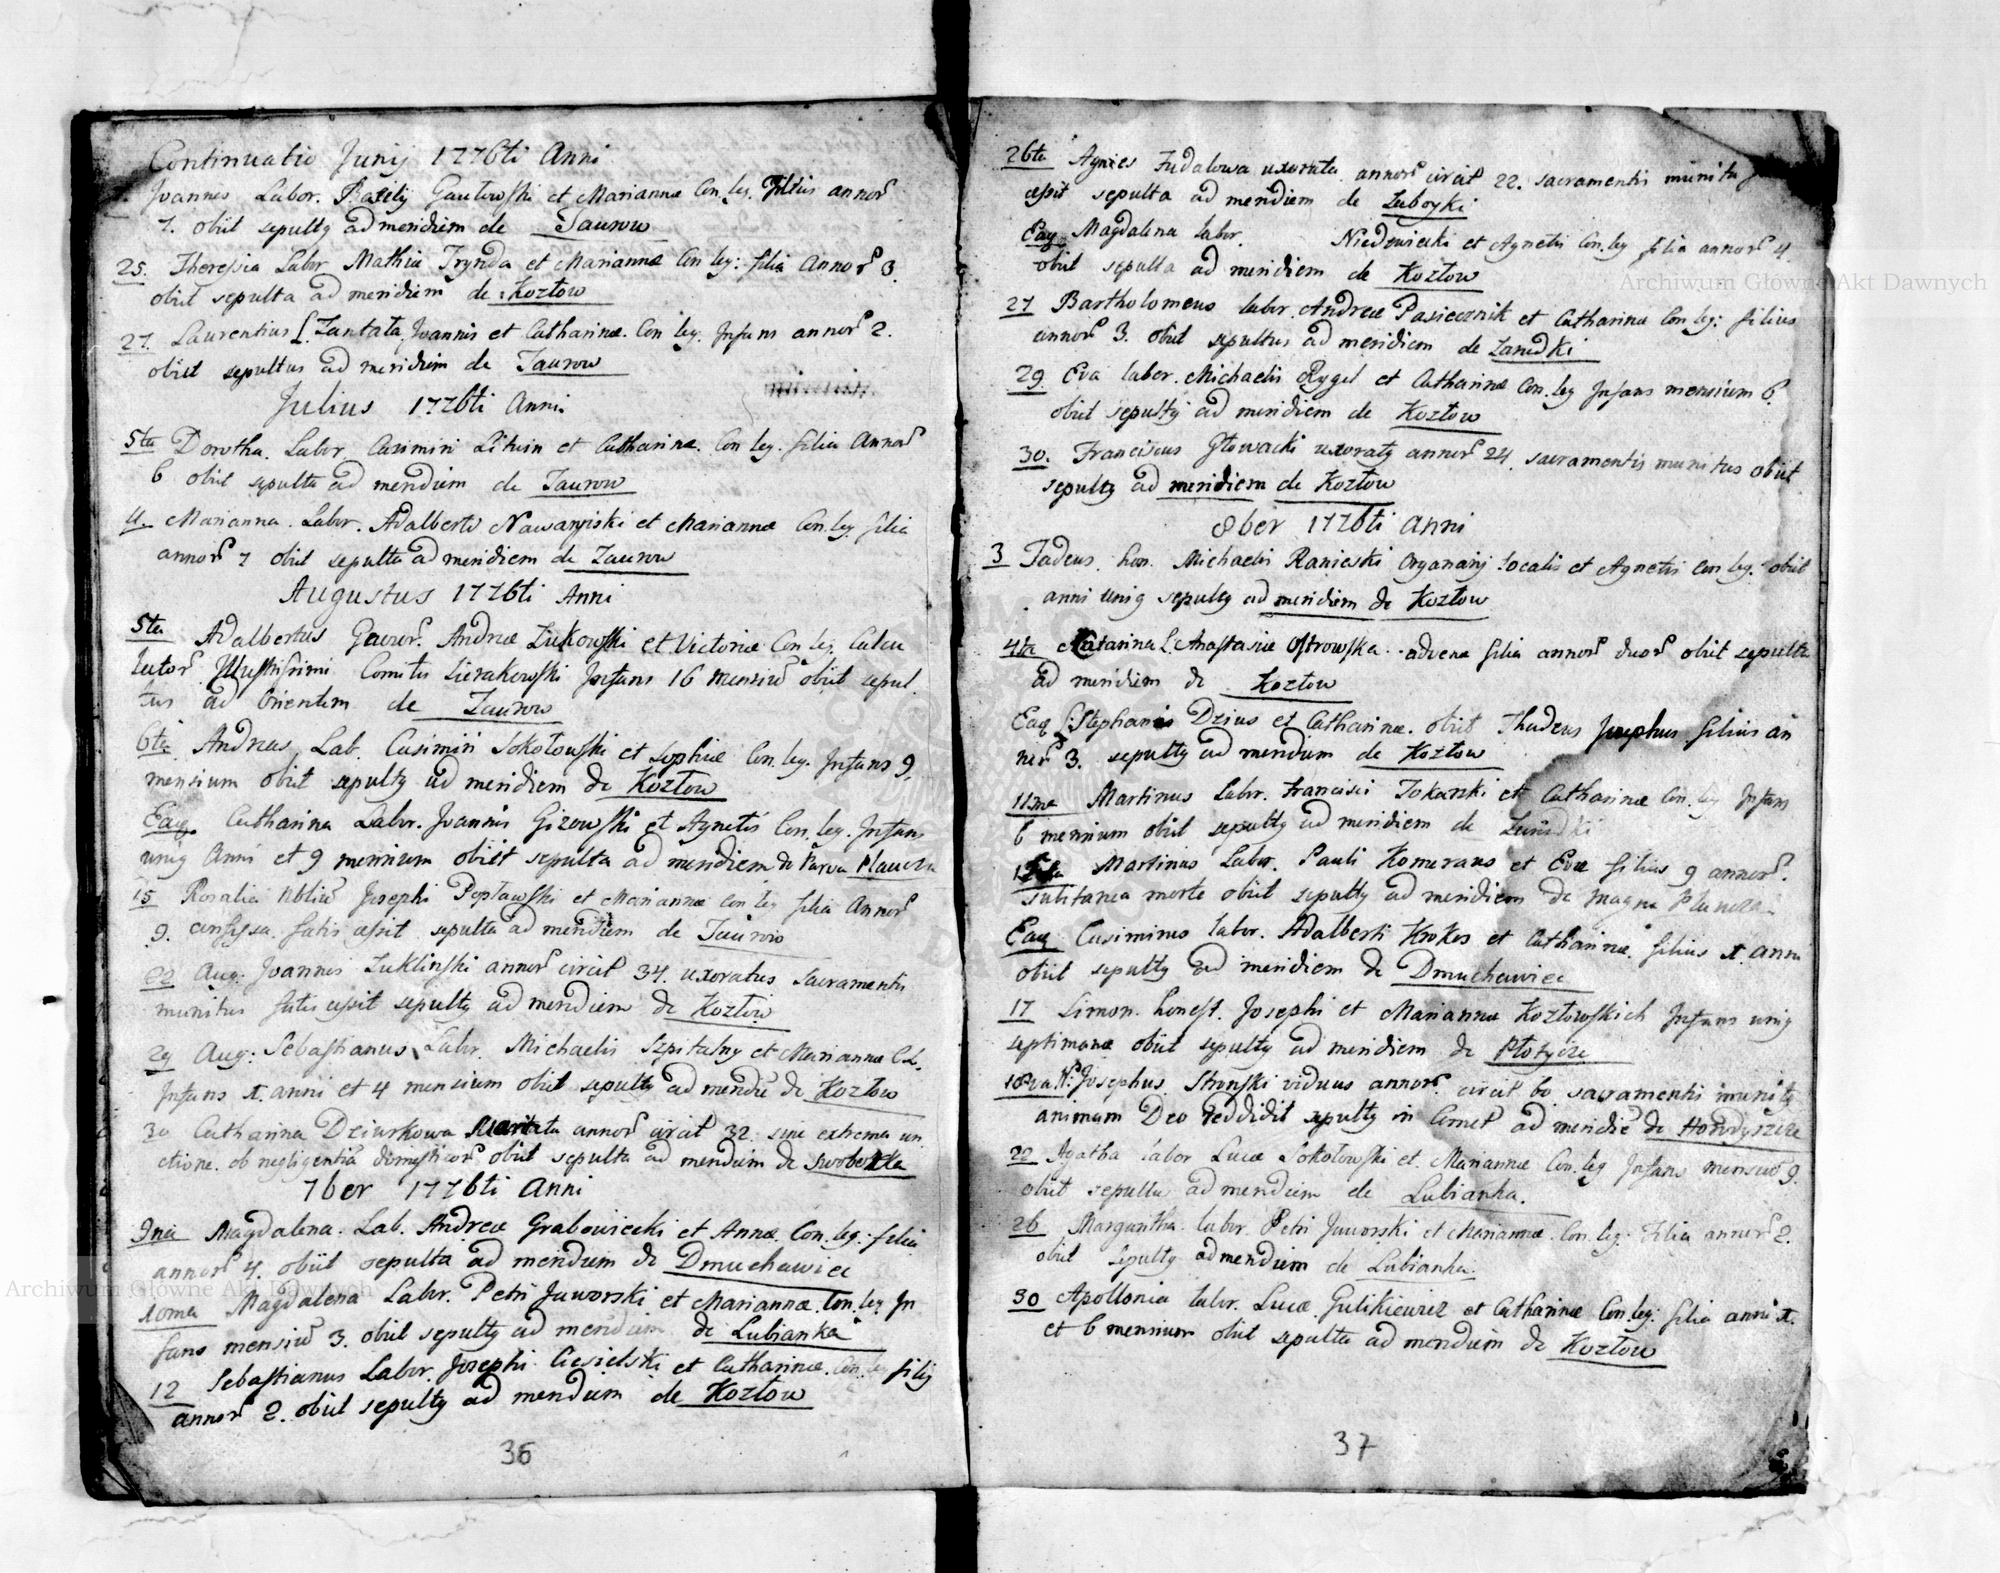 Continuatio Junij 1776ti Anni
Joannes Labor. Basilij Gautowski et Mariannæ Con. leg. filius annor
7. obiit sepultq ad meridiem de Taurow
25. Theressia Labor Mathiæ Trynda et Mariannæ Con leg: filia Annor 3
obiit sepulta ad meridiem de Kozłow
27. Laurentius Joannis et Catharinæ. Con leg. Infans annor 2.
obiit sepultus ad meridiem de Taurow
Julius 1776ti Anni.
5ta Dorotha. Labor. Casimiri Litwin et Catharinæ. Con leg. filia Annor
6 obiit sepulta ad meridiem de Taurow
11. Marianna. Labor. Adalberti et Mariannæ Con leg. filia
annor 7 obiit sepulta ad meridiem de Taurow
Augustus 1776ti Anni
5ta Adalbertus Andreæ Żukowski et Victoriæ Con leg.
Illustrissimi Comitis Sierakowski Infans 16 mensiū obiit sepul
tus ad Orientem de Taurow
6ta Andreas Lab. Casimiri Sokołowski et Sophiæ Con. leg. Infans 9.
mensium obiit sepultq ad meridiem de Kozłow
Eaq. Catharina Labor. Joannis Gizowski et Agnetis Con. leg. Infans
uniq Anni et 9 mensium obiit sepulta ad meridiem de Parva Plaucza
15 Rosalia Josephi Popławski et Mariannæ Con leg filia Annor
9. confessa. fatis cessit sepulta ad meridiem de Taurow
22 Aug. Joannes Żuklinski annor circit 34. uxoratus Sacramentis
munitus fatis cessit sepultq ad meridiem de Kozłow
29 Aug: Sebastianus Labor. Michaelis Szpitalny et Mariannæ C L.
Infans 1. anni et 4 mensium obiit sepultq ad meridiē de Kozłow
30 Catharina Dziurkowa annor circit 32. sine extrema un
ctione. ob negligentiā domesticor obiit sepulta ad meridiem de
7ber 1776ti Anni
9na Magdalena. Lab. Andreæ Grabowiecki et Annæ. Con. leg: filia
annor 4. obiit sepulta ad meridiem de Dmuchawiec
10ma Magdalena Labor. Petri Jaworski et Mariannæ. Con. leg In
fans mensiū 3. obiit sepultq ad meridiem de Łubianka
12 Sebastianus Labor. Josephi Ciesielski et Catharinæ. Con. leg filiq
annor 2. obiit sepultq ad meridiem de Kozłow
36
26ta Agnies Fudalowa uxorata annor circit 22. sacramentis munita
cessit sepulta ad meridiem de
Eaq Magdalena labor. Niedzwiecki et Agnetis Con. leg filia annor 4
obiit sepulta ad meridiem de Kozłow
27 Bartholomeus labor. Andreæ Pasiecznik et Catharinæ Con. leg: filius
annor 3. obiit sepultus ad meridiem de Zarudki
29 Eva labor. Michaelis Rygel et Catharinæ Con. leg Infans mensium 6.
obiit sepultq ad meridiem de Kozłow
30. Franciscus Głowacki uxoratq annor 24 sacramentis munitus obiit
sepultq ad meridiem de Kozłow
8ber 1776ti Anni
3 Tadeus. hon. Michaelis Ranieski Organarij localis et Agnetis Con leg. obiit
anni uniq sepultq ad meridiem de Kozłow
4ta Katarina L. Anastasiæ Ostrowska. advena filia annor duor obiit sepulta
ad meridiem de Kozłow
Eaq Stephani Dzius et Catharinæ. obiit Thadeus Josephus filius an
nor 3. sepultq ad meridiem de Kozłow
11ma Martinus Labor. Francisci Tokarski et Catharinæ Con. leg Infans
6 mensium obiit sepultq ad meridiem de Zarudki
Martinus Labor. Pauli et Evæ filius 9 annor.
subitanea morte obiit sepultq ad meridiem de Magna Plaucza
Eaq Casimirus labor. Adalberti Krokos et Catharinæ. filius 1. anni
obiit sepultq ad meridiem de Dmuchawiec
17 Simon. honest. Josephi et Mariannæ Kozłowskich Infans uniq
septimanæ obiit sepultq ad meridiem de Płotycze
18va Josephus. Stronski viduus annor. circit 60 sacramentis munitq
animam Deo reddidit sepultq in Cemet ad meridiē de Horodyszcze
22 Agatha labor Lucæ Sokołowski et Mariannæ Con. leg Infans mensiū 9.
obiit sepulta ad meridiem de Łubianka.
26 Margaritha labor. Petri Jaworski et Mariannæ. Con. leg. Filia annor 2.
obiit sepultq ad meridiem de Łubianka.
30 Apollonia labor. Lucæ Gulikiewicz et Catharinæ Con. leg: filia anni 1.
et 6 mensium obiit sepulta ad meridiem de Kozłow
37
Archiwum Główne Akt Dawnych
Archiwum Główne Akt Dawnych